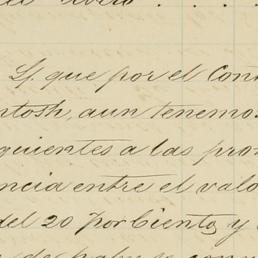 y que por el Con
ntosh, aun tenemos
guientes a las pro
ncia entre el valo
del 20 por Ciento, y